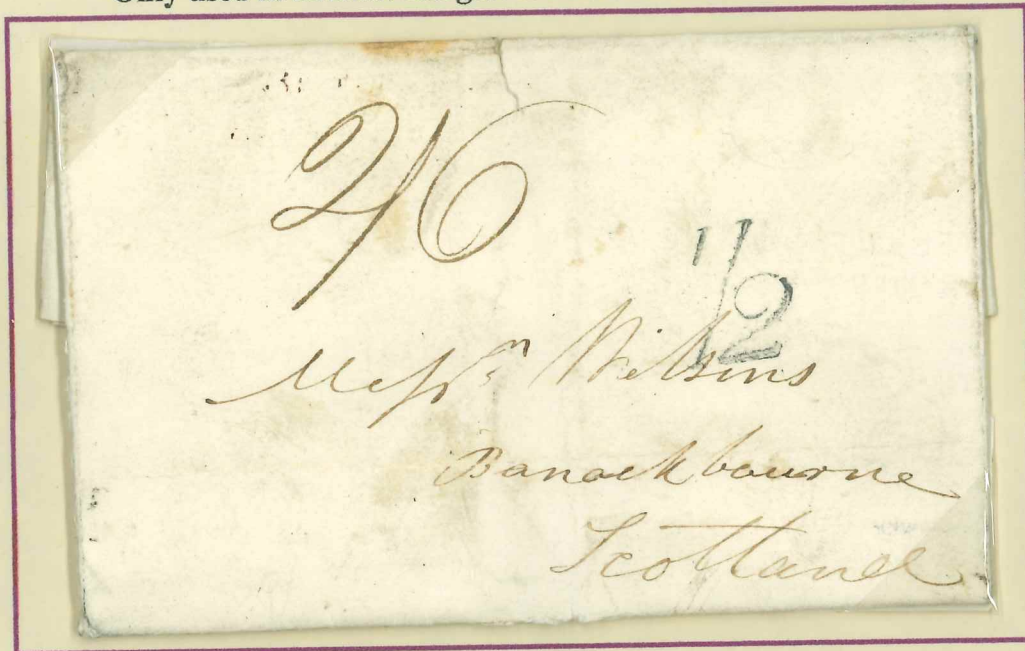 Only used
2/6
1/2
Messrs Wilsons
Banockbourne
Scotland